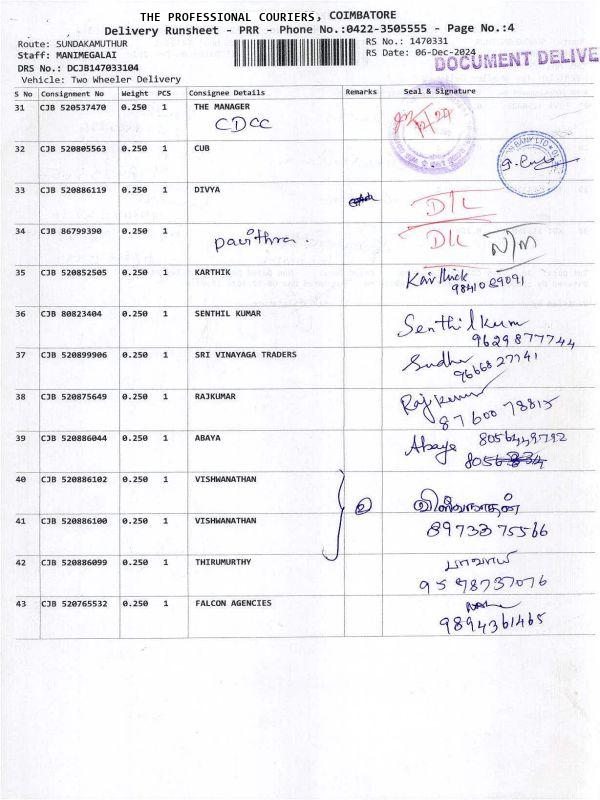 THE PROFESSIONAL COURIERS, COIMBATORE
Delivery Runsheet - PRR - Phone No.:0422-3505555 - Page No.:4
Route: SUNDAKAMUTHUR
Staff: MANIMEGALAI
DRS No.: DCJB147033104
Vehicle: Two Wheeler Delivery
RS No.: 1470331
RS Date: 06-Dec-2024
DOCUMENT DELIVE
S No Consignment No Weight PCS Consignee Details Remarks Seal & Signature
31 CJB 520537470 0.250 1 THE MANAGER
CDCC
32 CJB 520805563 0.250 1 CUB
33 CJB 520886119 0.250 1 DIVYA
D/L
34 CJB 86799390 0.250 1
pavithra. D/L N/M
35 CJB 520852505 0.250 1 KARTHIK Karthick
9841089091
36 CJB 80823404 0.250 1 SENTHIL KUMAR Senthilkum
9629877744
37 CJB 520899906 0.250 1 SRI VINAYAGA TRADERS Sudha
9666827741
38 CJB 520875649 0.250 1 RAJKUMAR Rajkumar
87600 78815
39 CJB 520886044 0.250 1 ABAYA Abaya 8056449792
40 CJB 520886102 0.250 1 VISHWANATHAN
விஸ்வநாதன்
41 CJB 520886100 0.250 1 VISHWANATHAN
8973375566
42 CJB 520886099 0.250 1 THIRUMURTHY
9598737076
43 CJB 520765532 0.250 1 FALCON AGENCIES
9894361465